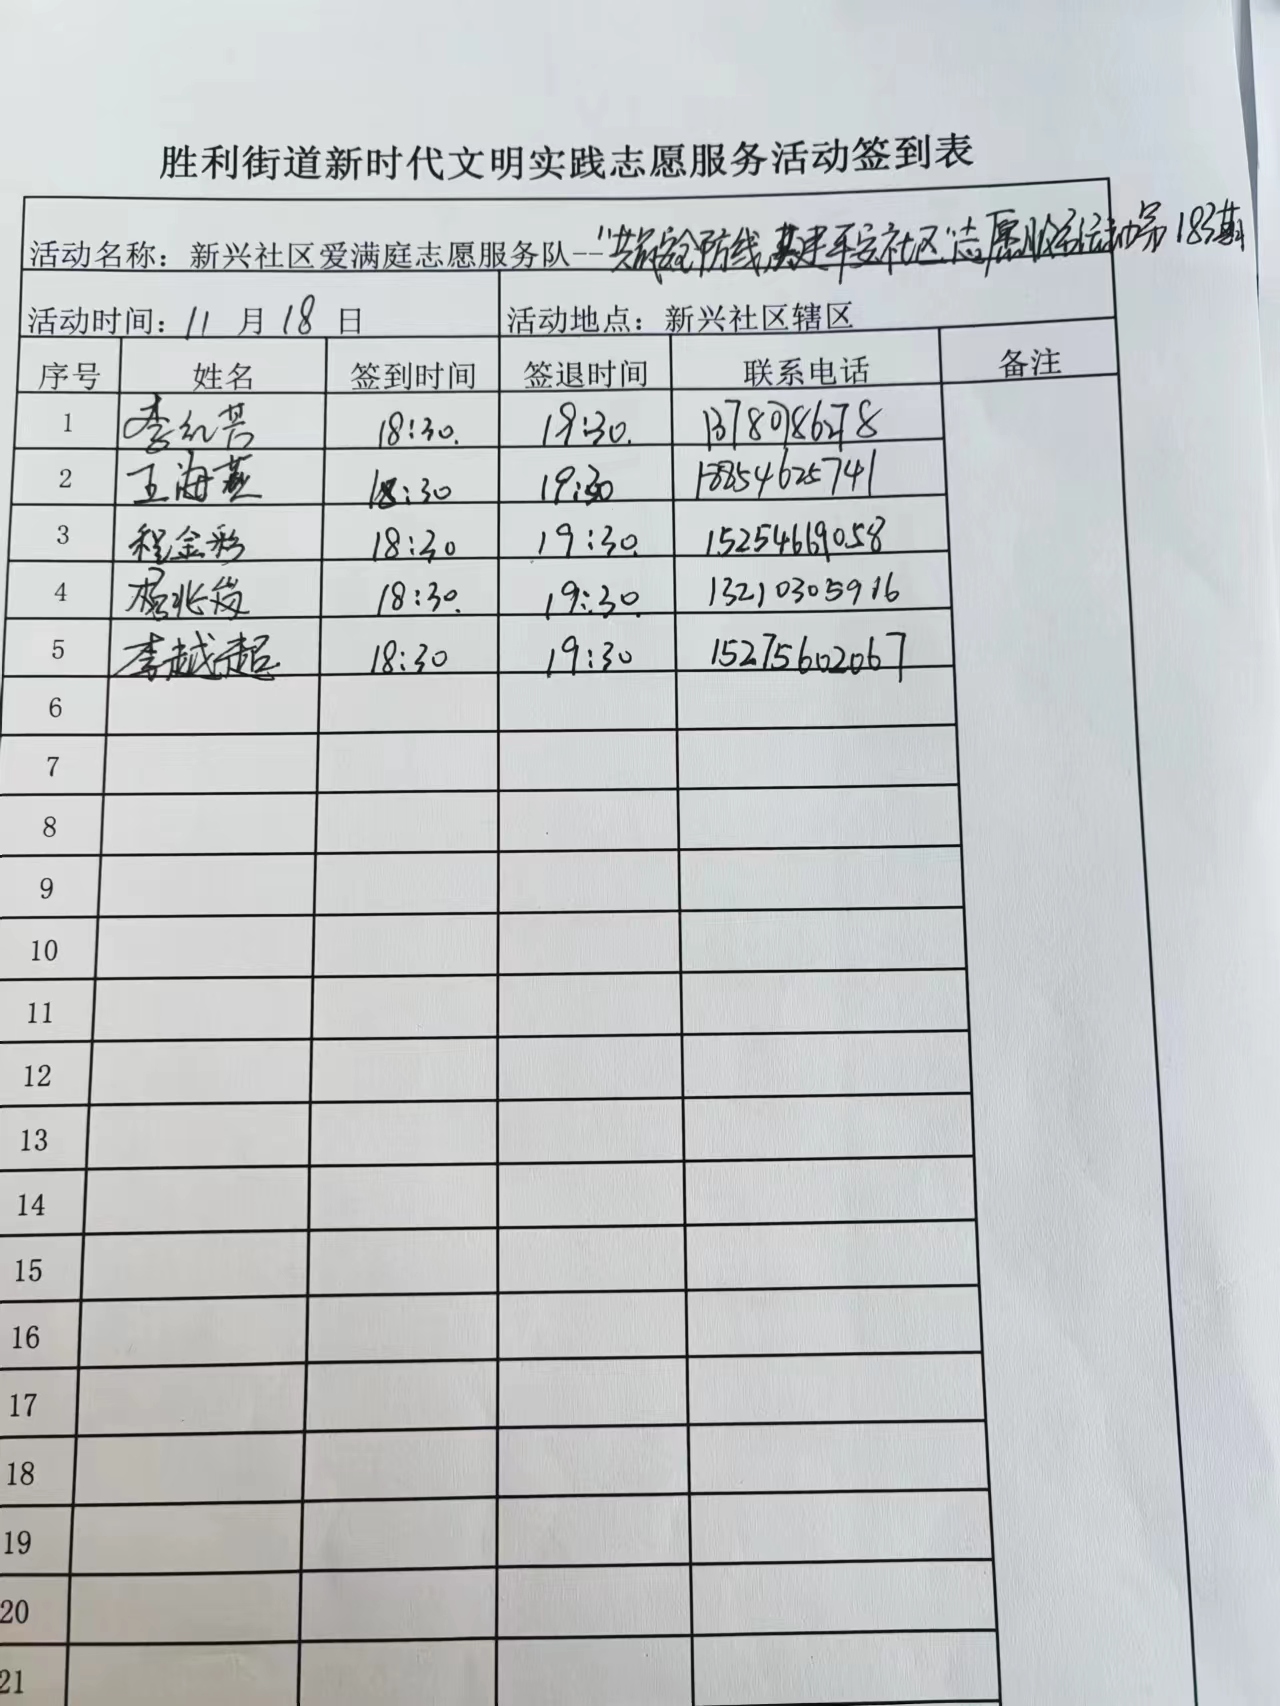 胜利街道新时代文明实践志愿服务活动签到表
活动名称：新兴社区爱满庭志愿服务队--"共筑安全防线,共建平安社区"志愿服务活动第183期
活动时间：11 月 18 日 活动地点：新兴社区辖区
序号 姓名 签到时间 签退时间 联系电话 备注
1 18:30. 19:30.
2 王海燕 18:30 19:30 18854625741
3 程金彩 18:30 19:30. 15254669058
4 18:30. 19:30. 13210305916
5 李越超 18:30 19:30 15275602067
6
7
8
9
10
11
12
13
14
15
16
17
18
19
20
21